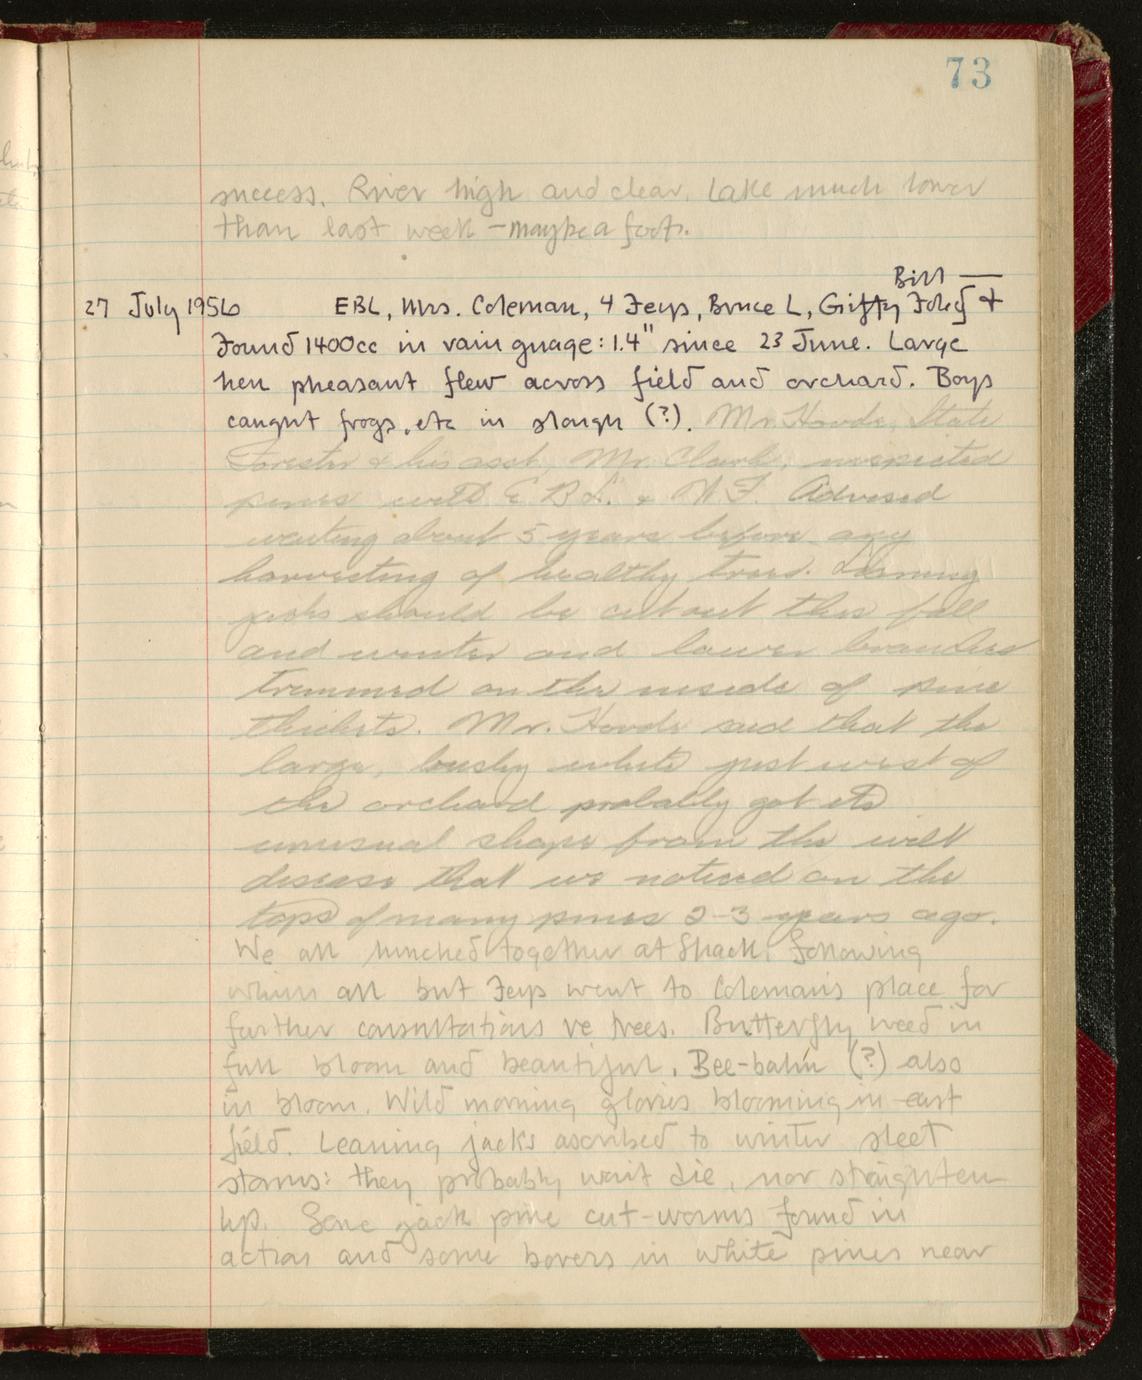 73
success. River high and clear. Lake much lower
than last week – maybe a foot.
Bill —
27 July 1956 EBL, Mrs. Coleman, 4 Feys, Bruce L, Giffy Foley +
Found 1400cc in rain guage: 1.4" since 23 June. Large
hen pheasant flew across field and orchard. Boys
caught frogs, etc in slough (?). Mr. Hovde, State
Forester & his asst, Mr. Clark, inspected
pines with E B L. & W. F. Advised
waiting about 5 years before any
harvesting of healthy trees. Leaning
jacks should be cut out this fall
and winter and lower branches
trimmed on the inside of pine
thickets. Mr. Hovde said that the
large, bushy white just west of
the orchard probably got its
unusual shape from the wilt
disease that we noticed on the
tops of many pines 2-3 years ago.
We all lunched together at Shack, following
which all but Feys went to Coleman's place for
further consultations re trees. Butterfly weed in
full bloom and beautiful. Bee-balm (?) also
in bloom. Wild morning glories blooming in east
field. Leaning jacks ascribed to winter sleet
storms: they probably won't die, nor straighten
up. Some jack pine cut-worms found in
action and some borers in white pines near